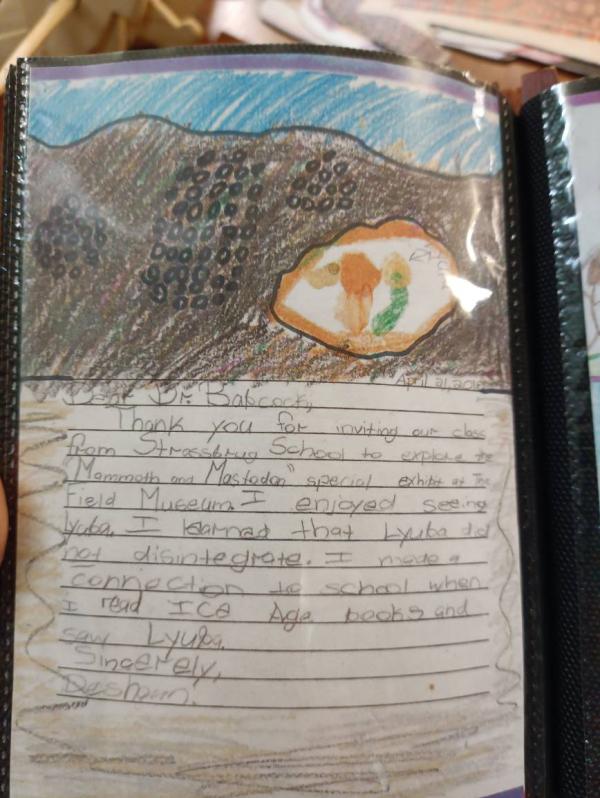 April 21, 201
Dear Dr. Babcock,
Thank you for inviting our class
from Strassbrug School to explore the
"Mammoth and Mastodon" special exhibit at The
Field Museum. I enjoyed seeing
Lyuba. I learned that Lyuba did
not disintegrate. I made a
connection to school when
I read ICE Age books and
saw Lyuba.
Sincerely,
Deshaun.